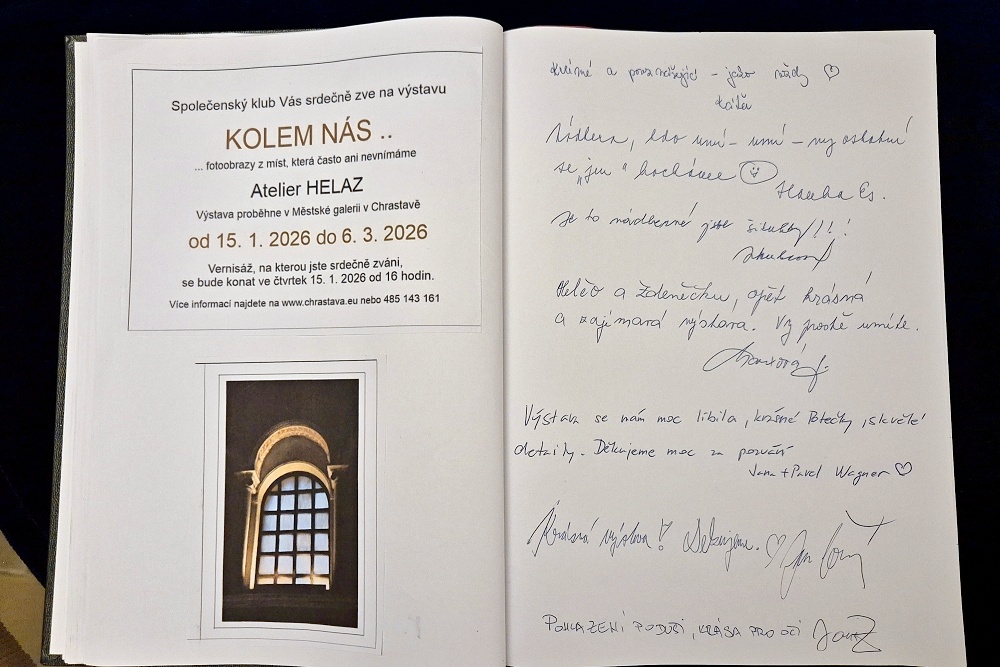 Společenský klub Vás srdečně zve na výstavu
KOLEM NÁS ..
... fotoobrazy z míst, která často ani nevnímáme
Atelier HELAZ
Výstava proběhne v Městské galerii v Chrastavě
od 15. 1. 2026 do 6. 3. 2026
Vernisáž, na kterou jste srdečně zváni,
se bude konat ve čtvrtek 15. 1. 2026 od 16 hodin.
Více informací najdete na www.chrastava.eu nebo 485 143 161
a - jako vždy ♡
Nádhera, kdo umí - umí - my ostatní
se „jen“ kocháme Hanka
Je to nádherné jste !!!
a Zdeněčku, opět krásná
a zajímavá výstava. Vy prostě umíte.
Výstava se nám moc líbila, krásné , skvělé
detaily. Děkujeme moc za pozvání
Jana + Pavel Wagner ♡
Krásná výstava! Děkujeme. ♡ Jan
DUŠI, KRÁSA PRO OČI